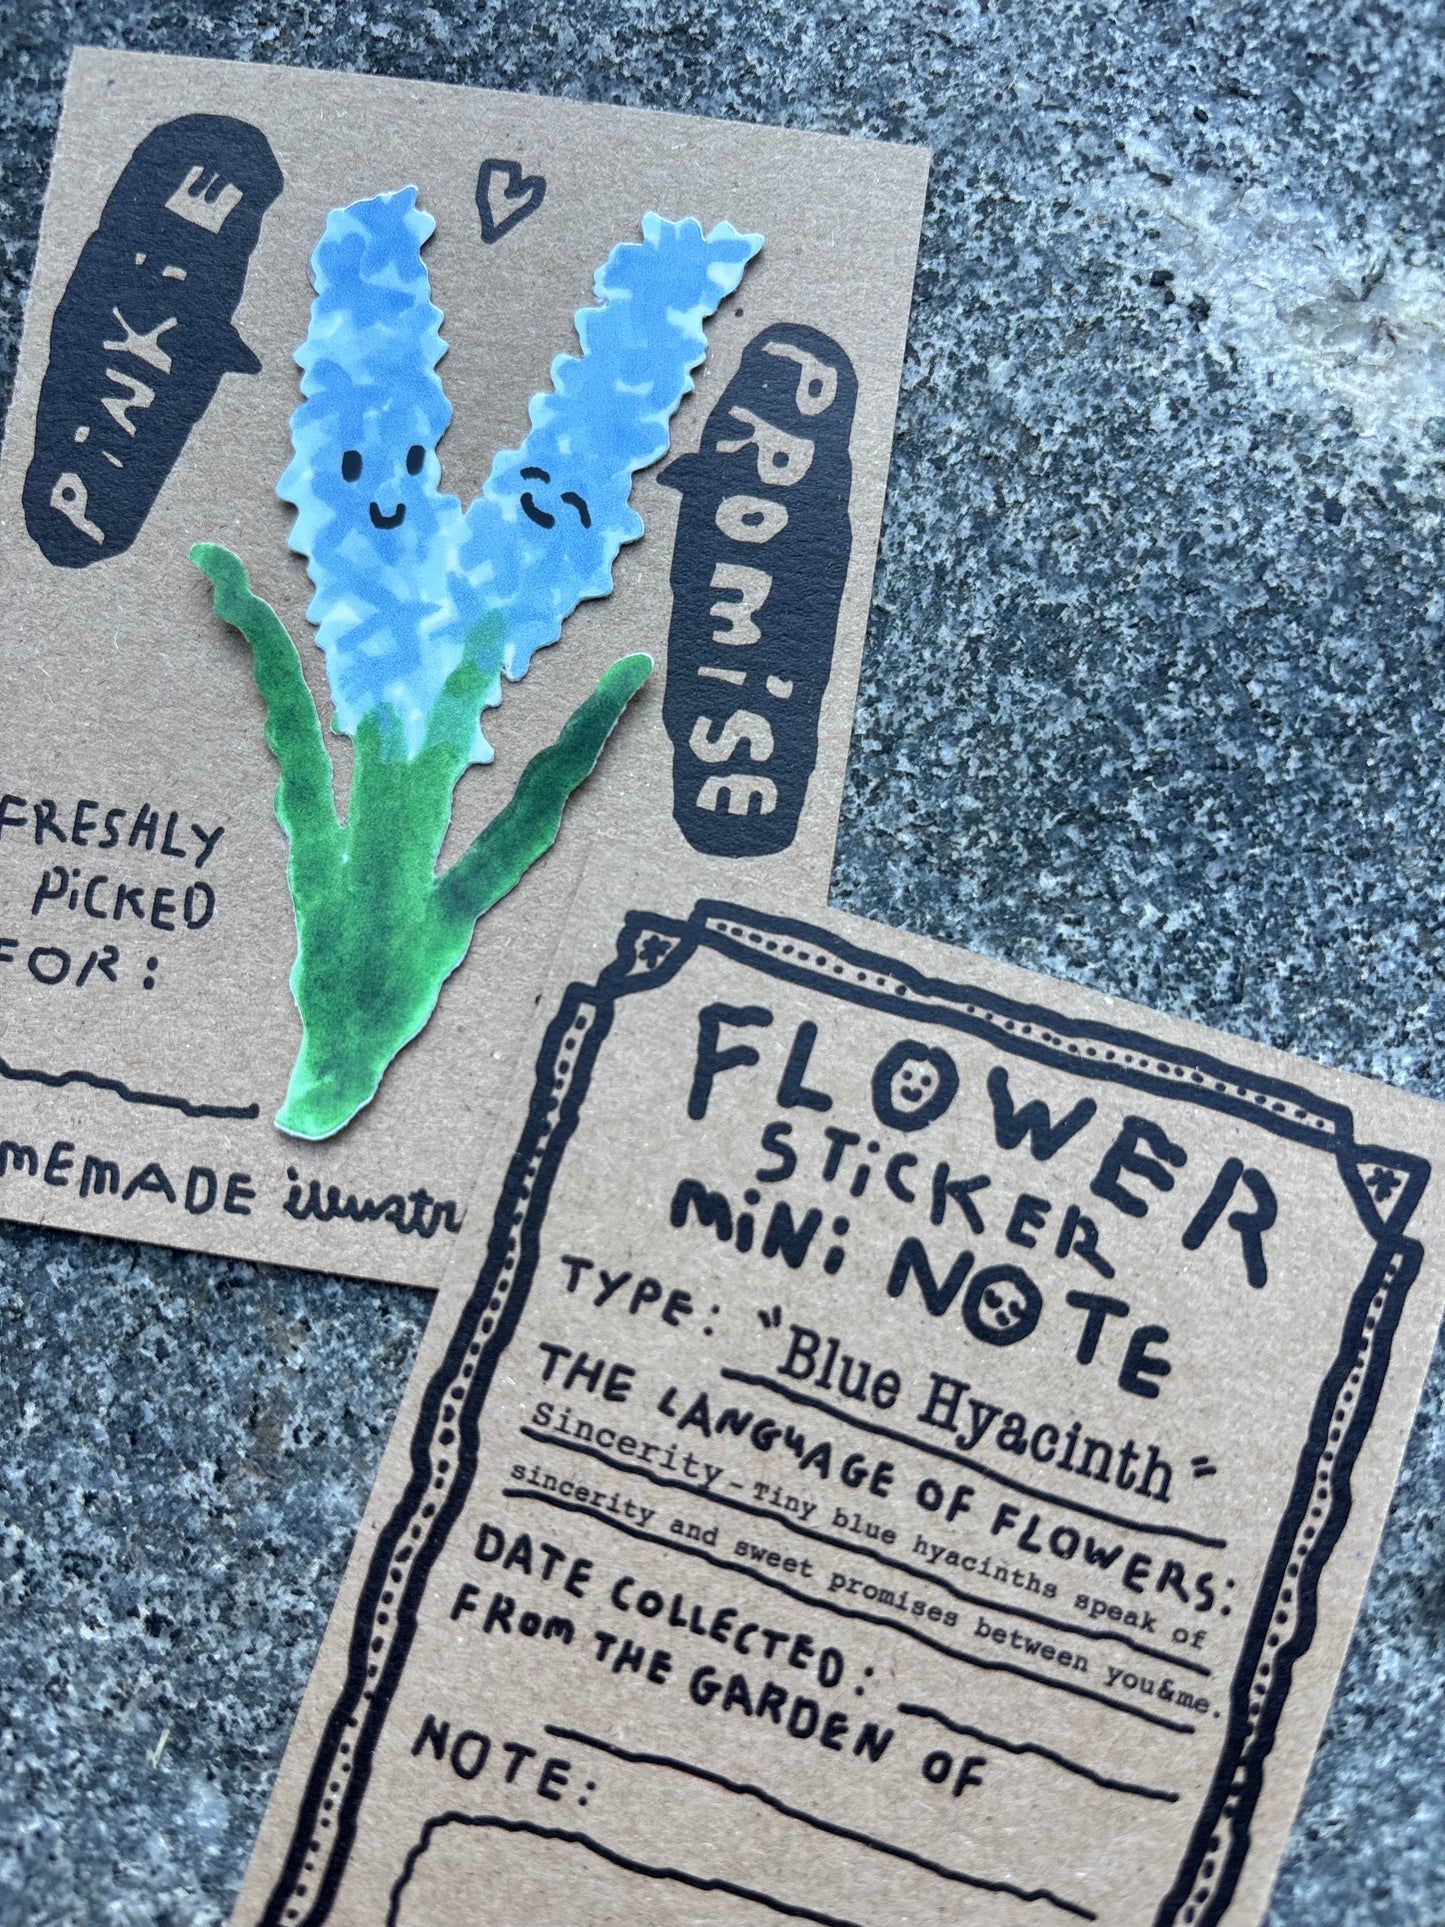 PiNKiE
PROMiSE
FRESHLY
PiCKED
FOR:
MEMADE illustr
FLOWER
STiCKER
MiNi NOTE
TYPE: "Blue Hyacinth"
THE LANGUAGE OF FLOWERS:
Sincerity - Tiny blue hyacinths speak of
sincerity and sweet promises between you&me.
DATE COLLECTED:
FROM THE GARDEN OF
NOTE: